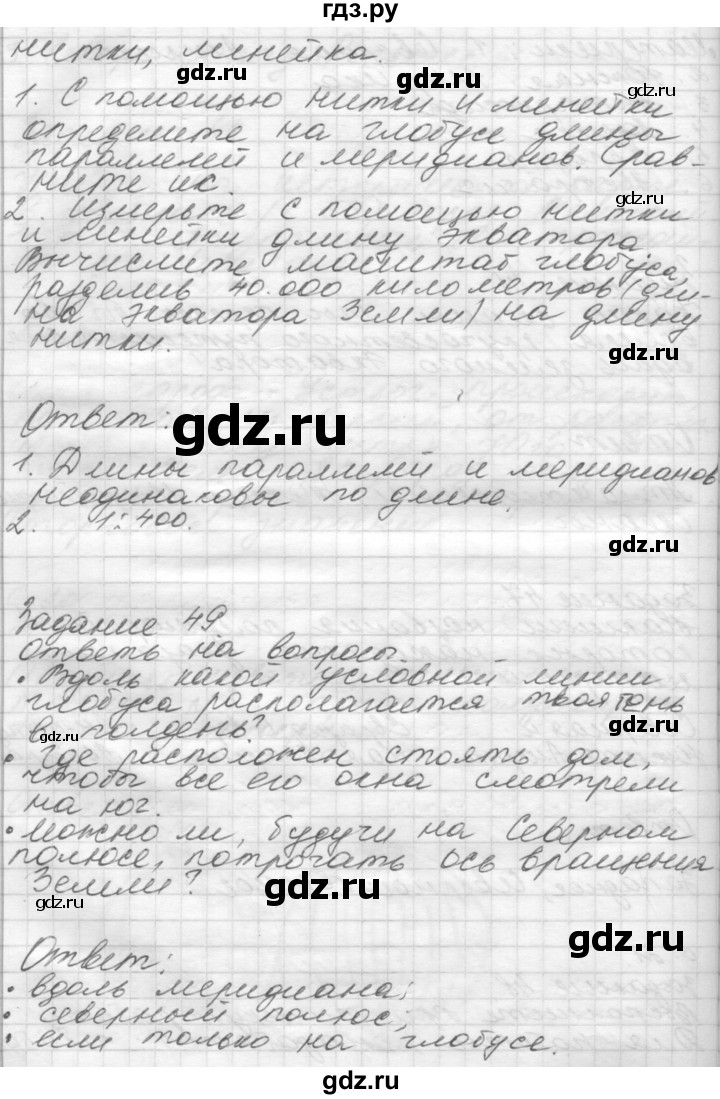 гдз.ру
нитки, линейка.
gdz.ru
1. С помощью нитки и линейки
определите на глобусе длины
параллелей и меридианов. Срав-
gdz.ru
ните их.
2. Измерьте с помощью нитки
и линейки длину экватора
Вычислите масштаб глобуса,
разделив 40.000 километров (дли-
на экватора Земли) на длину
нитки.
gdz.ru
Ответ:
gdz.ru
1. Длины параллелей и меридианов
неодинаковы по длине.
2. 1:400.
gdz.ru
Задание 49
ответь на вопросы.
• Вдоль какой условной линии
глобуса располагается твоя тень
в полдень?
gdz.ru
gdz.ru
• Где расположен стоять дом,
чтобы все его окна смотрели
на юг.
• можно ли, будучи на Северном
полюсе, потрогать ось вращения
Земли?
gdz.ru
gdz.ru
gdz.ru
Ответ:
• вдоль меридиана;
• северный полюс;
• если только на глобусе.
gdz.ru
gdz.ru
gdz.ru